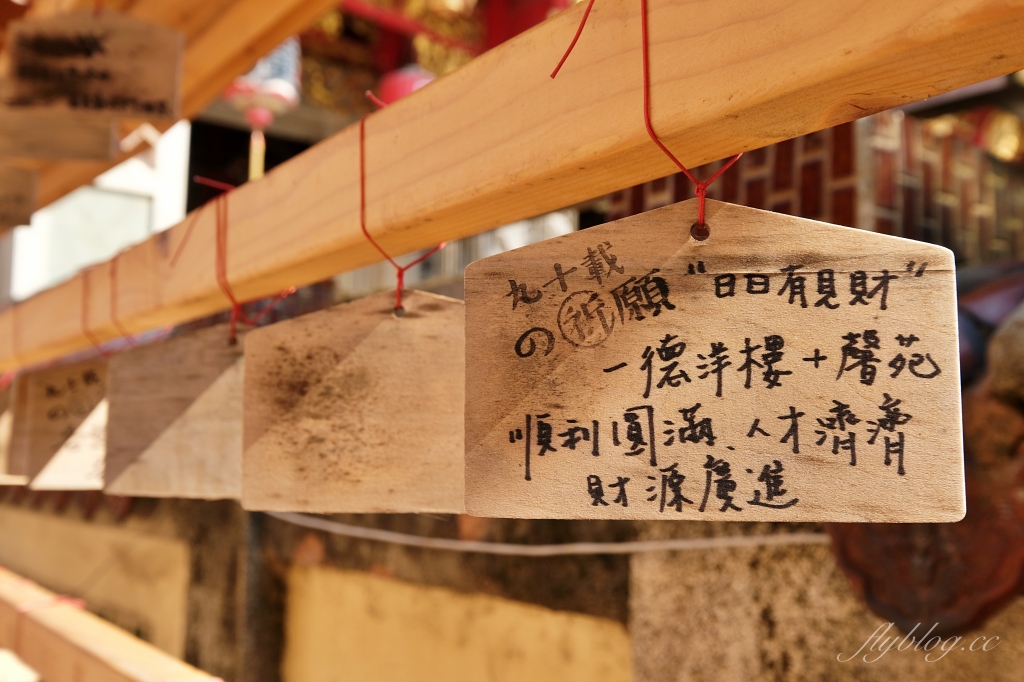 九十載
の祈願 "日日有見財"
一德洋樓+馨苑
順利圓滿、人才濟濟
財源廣進
flyblog.cc